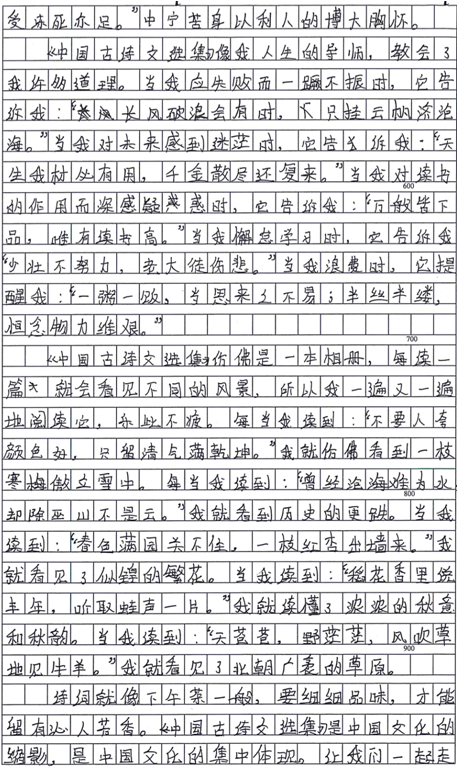 受冻死亦足。”中宁苦身以利人的博大胸怀。
《中国古诗文选集》像我人生的导师，教会了
我许多道理。当我应失败而一蹶不振时，它告
诉我：“长风破浪会有时，只挂云帆济沧
海。”当我对未来感到迷茫时，它告诉我：“天
生我材必有用，千金散尽还复来。”当我对读书
的作用而深感疑惑时，它告诉我：“万般皆下
品，唯有读书高。”当我懈怠学习时，它告诉我
“少壮不努力，老大徒伤悲。”当我浪费时，它提
醒我：“一粥一饭，当思来之不易；半丝半缕，
恒念物力维艰。”
600
700
《中国古诗文选集》仿佛是一本相册，每读一
篇就会看见不同的风景，所以我一遍又一遍
地阅读它，乐此不疲。每当我读到：“不要人夸
颜色好，只留清气满乾坤。”我就仿佛看到一枝
寒梅傲立雪中。每当我读到：“曾经沧海难为水，
800
却除巫山不是云。”我就看到历史的更迭。当我
读到：“春色满园关不住，一枝红杏出墙来。”我
就看见了似锦的繁花。当我读到：“稻花香里说
丰年，听取蛙声一片。”我就读懂了浓浓的秋意
和秋韵。当我读到：“天苍苍，野茫茫，风吹草
900
地见牛羊。”我就看见了北朝广袤的草原。
诗词就像下午茶一般，要细细品味，才能
留有沁人苦香。《中国古诗文选集》是中国文化的
缩影，是中国文化的集中体现。让我们一起走